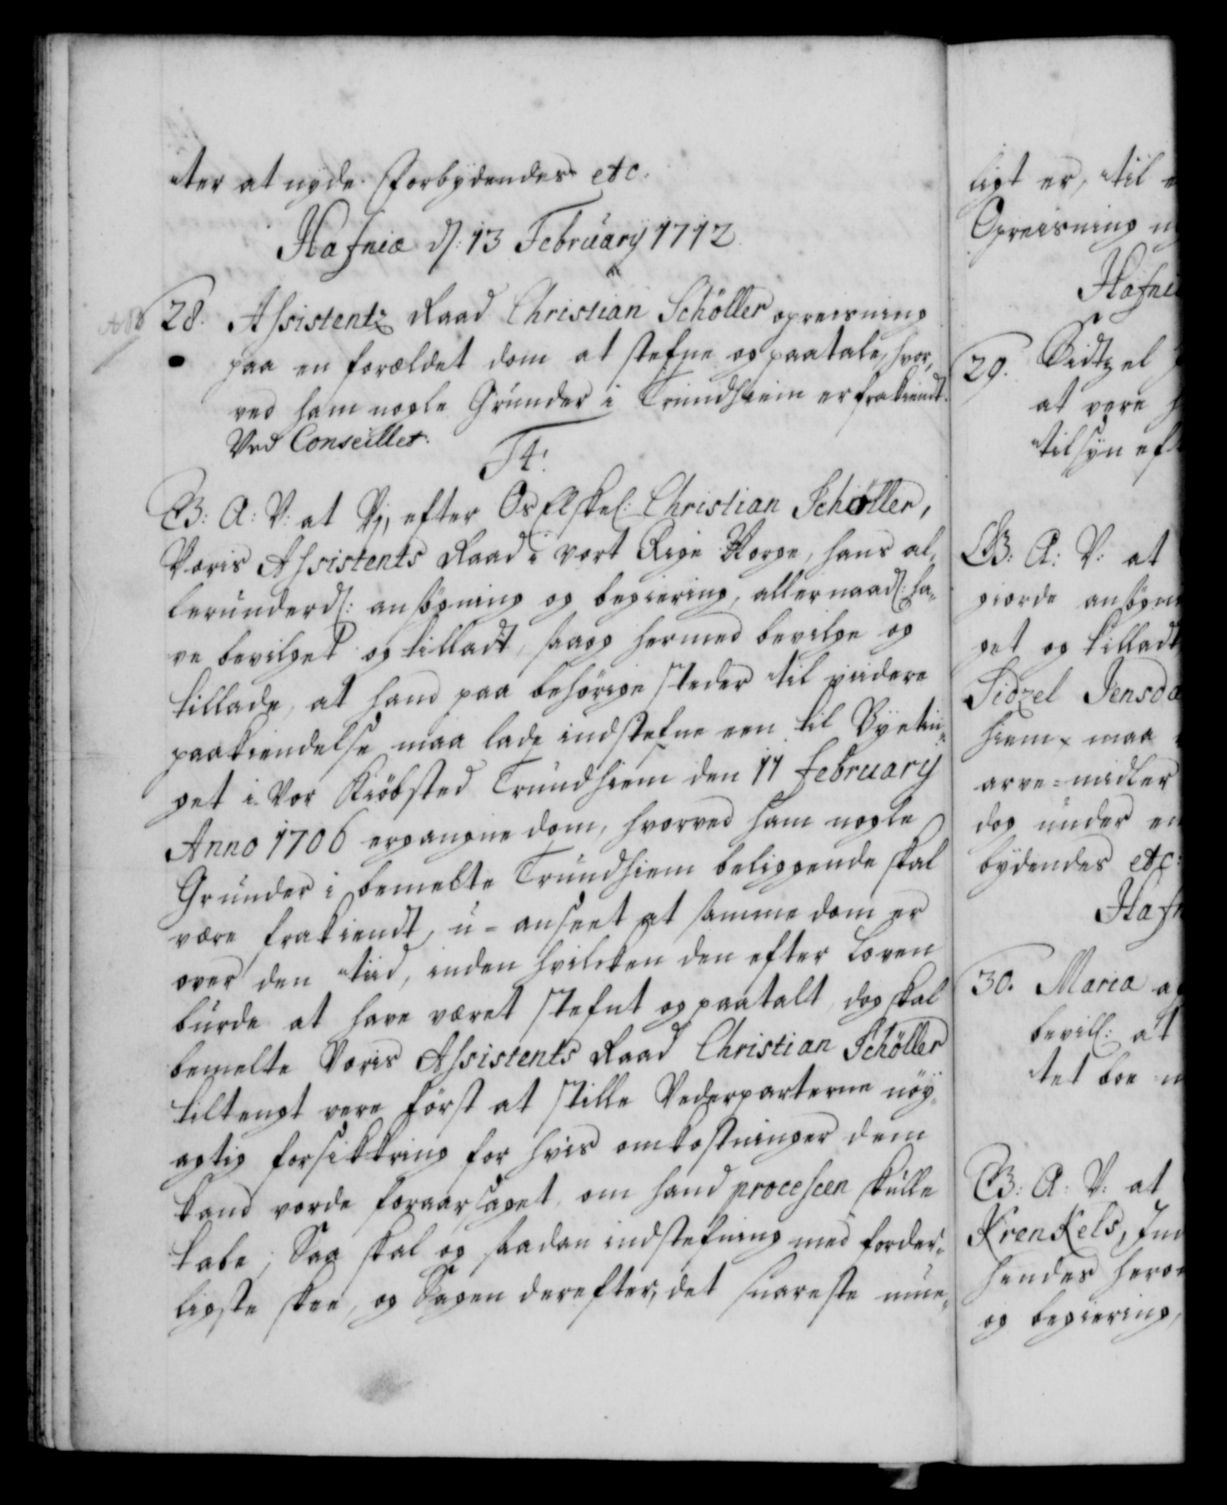 ter at nyde. Forbydendes etc.
Hafniæ d: 13 February 1712.
28. Assistentz Raad Christian Schöller opreisning
paa en forældet dom at stefne og paatale, hvor,
ved ham nogle Grunder i Trundhiem er frakiendt.
Ved Conseillet.
Ft:
G: A: V: at Vj, efter Os Elskel: Christian Schøller,
Voris Assistents Raad i vort Rige Norge, hans al,
lerunderd: ansøgning og begiering, allernaad: ha,
ve bevilget og tilladt, saa og hermed bevilge og
tillade, at hand paa behørige steder til viidere
paakiendelse maa lade indstefne een til Byetin,
get i Vor Kiöbsted Trundhiem den 11 february
Anno 1706 ergangne dom, hvorved ham nogle
Grunder i bemelte Trundhiem beliggende skal
være frakiendt, u-anseet at samme dom er
over den tiid, inden hvilcken den efter Loven
burde at have været stefnt og paatalt, dog skal
bemelte Voris Assistents Raad Christian Schöller
tiltengt vere först at stille Vederparterne nöy,
agtig forsikkring for hvis omkostninger dem
kand vorde foraarsaget, om hand processen skulle
tabe; Saa skal og saadan indstefning med forder,
ligste skee, og Sagen derefter, det snareste mue,
ligt er, til
Opreisning
Hafni
29. Sidtzel
at vere
tilsyn eft
G: A: V: at
giorde ansøgn
get og tilladt
Sidzel Jensda
hiem, maa
arve-midler
dog under en
bydendes etc:
Hafn
30. Maria
bevill: at
tet boe
G: A: V: at
Krenkels,
hendes
og begiering,